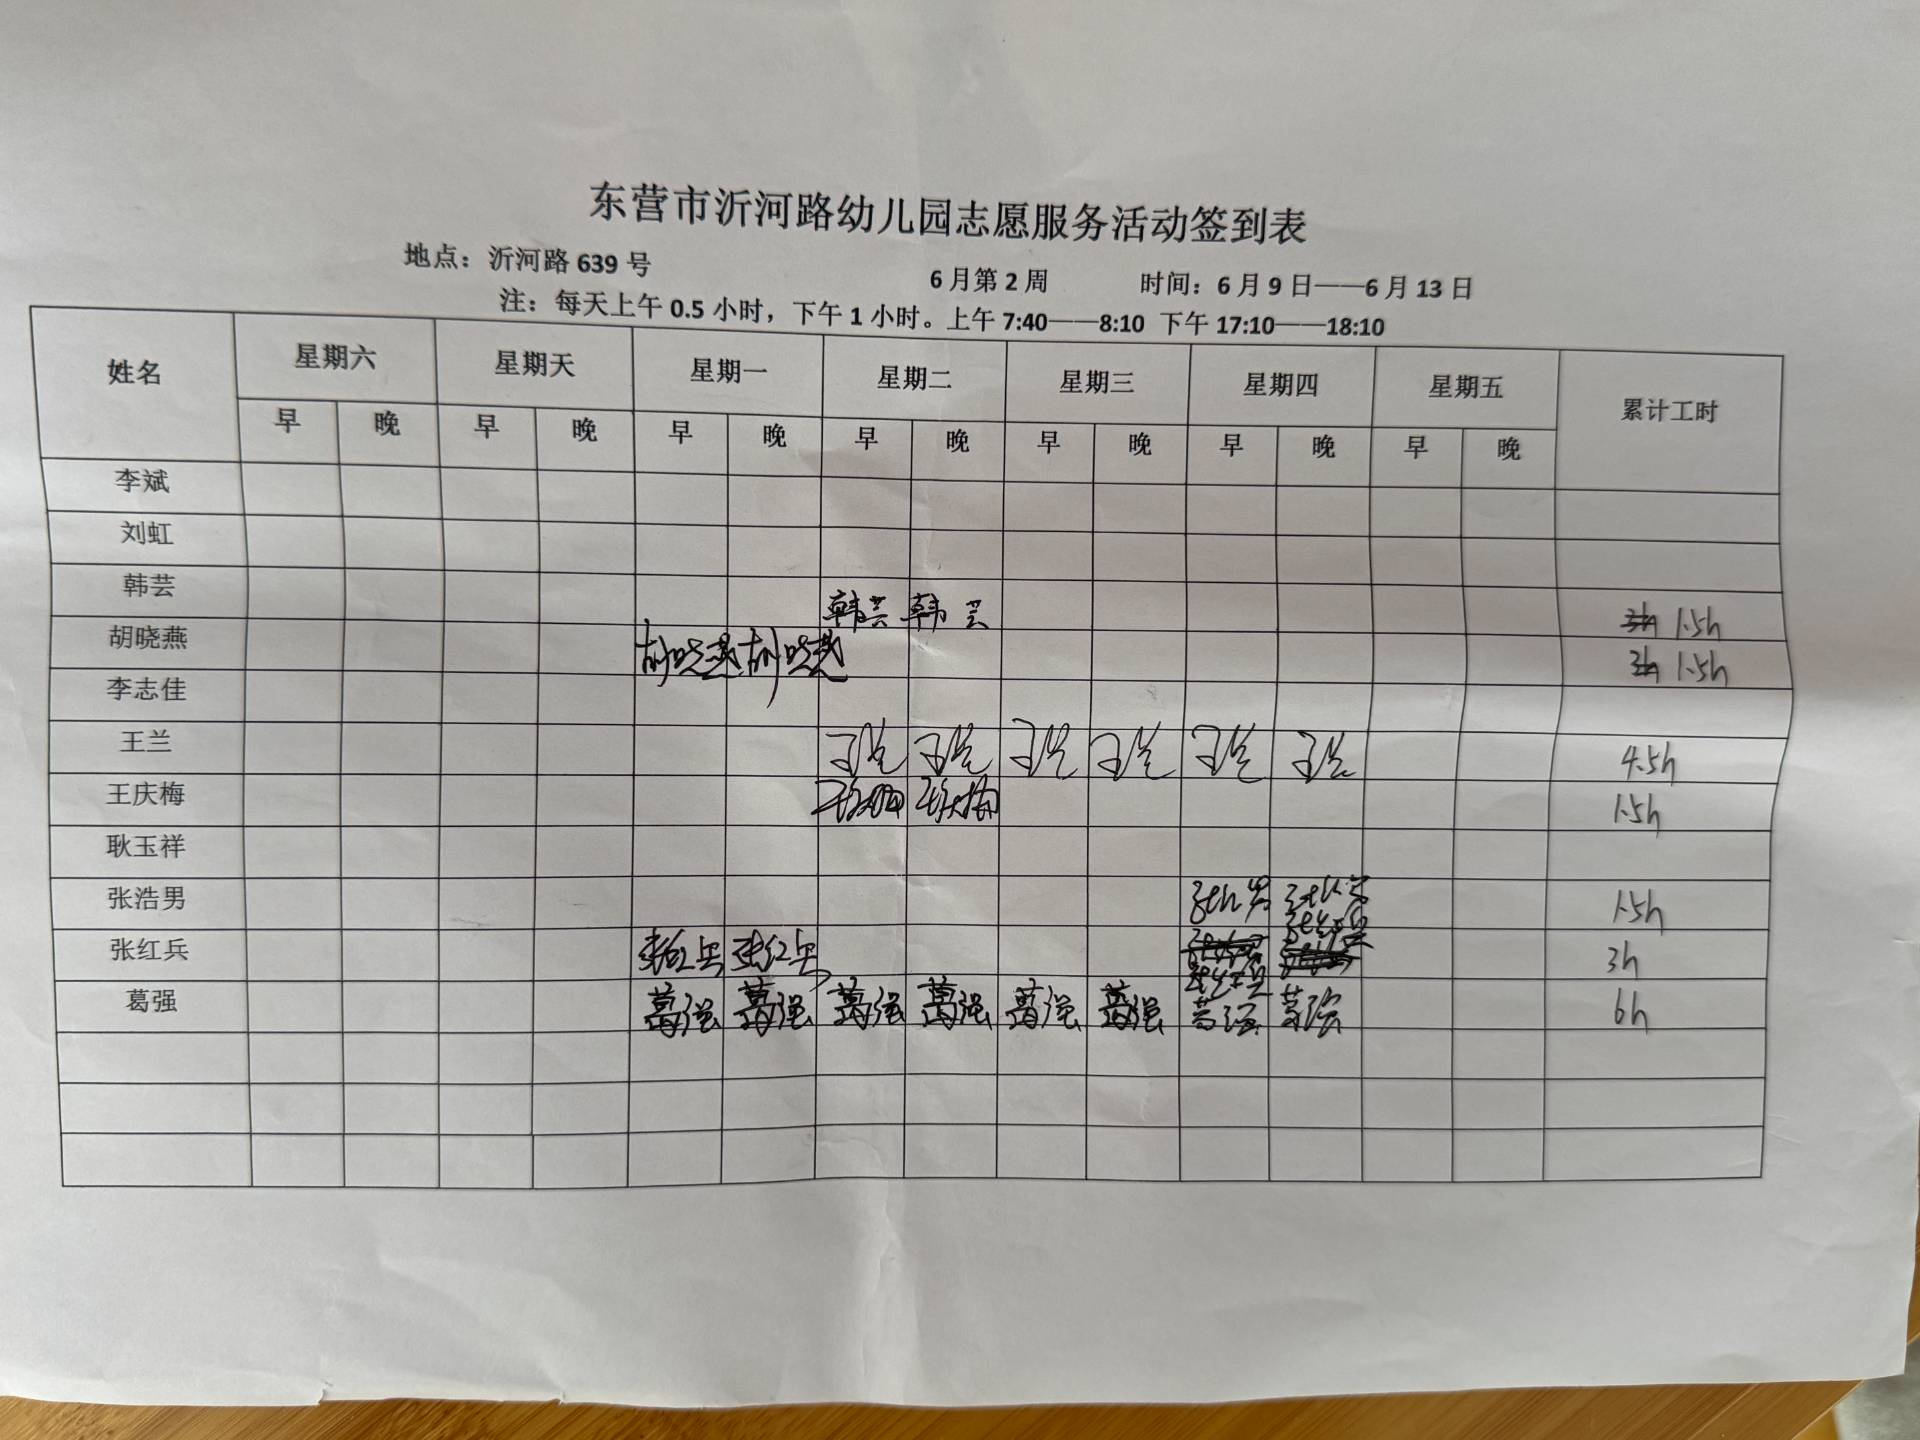 东营市沂河路幼儿园志愿服务活动签到表
地点：沂河路 639 号 6 月第 2 周 时间：6 月 9 日——6 月 13 日
注：每天上午 0.5 小时，下午 1 小时。上午 7:40——8:10 下午 17:10——18:10
姓名 星期六 星期天 星期一 星期二 星期三 星期四 星期五 累计工时
早 晚 早 晚 早 晚 早 晚 早 晚 早 晚 早 晚
李斌
刘虹
韩芸 韩芸 韩芸 3h 1.5h
胡晓燕 胡晓燕 胡晓燕 3h 1.5h
李志佳
王兰 王兰 王兰 王兰 王兰 王兰 王兰 4.5h
王庆梅 王庆梅 王庆梅 1.5h
耿玉祥
张浩男 张浩男 张浩男 1.5h
张红兵 张红兵 张红兵 张红兵 张红兵 3h
葛强 葛强 葛强 葛强 葛强 葛强 葛强 葛强 葛强 6h